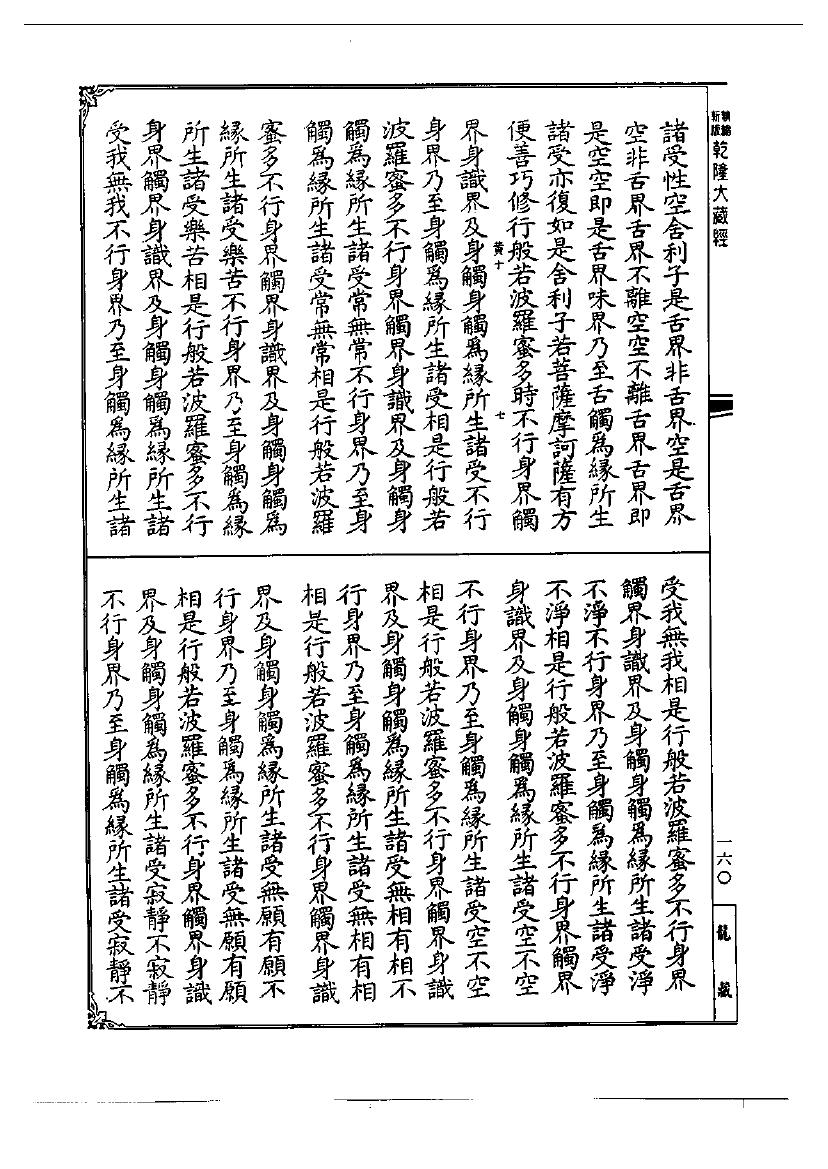 新編
新版
乾隆大藏經
諸受性空舍利子是舌界非舌界空是舌界
空非舌界舌界不離空空不離舌界舌界即
是空空即是舌界味界乃至舌觸為緣所生
諸受亦復如是舍利子若菩薩摩訶薩有方
便善巧修行般若波羅蜜多時不行身界觸
黃十
七
界身識界及身觸身觸為緣所生諸受不行
身界乃至身觸為緣所生諸受相是行般若
波羅蜜多不行身界觸界身識界及身觸身
觸為緣所生諸受常無常不行身界乃至身
觸為緣所生諸受常無常相是行般若波羅
蜜多不行身界觸界身識界及身觸身觸為
緣所生諸受樂苦不行身界乃至身觸為緣
所生諸受樂苦相是行般若波羅蜜多不行
身界觸界身識界及身觸身觸為緣所生諸
受我無我不行身界乃至身觸為緣所生諸
受我無我相是行般若波羅蜜多不行身界
觸界身識界及身觸身觸為緣所生諸受淨
不淨不行身界乃至身觸為緣所生諸受淨
不淨相是行般若波羅蜜多不行身界觸界
身識界及身觸身觸為緣所生諸受空不空
不行身界乃至身觸為緣所生諸受空不空
相是行般若波羅蜜多不行身界觸界身識
界及身觸身觸為緣所生諸受無相有相不
行身界乃至身觸為緣所生諸受無相有相
相是行般若波羅蜜多不行身界觸界身識
界及身觸身觸為緣所生諸受無願有願不
行身界乃至身觸為緣所生諸受無願有願
相是行般若波羅蜜多不行身界觸界身識
界及身觸身觸為緣所生諸受寂靜不寂靜
不行身界乃至身觸為緣所生諸受寂靜不
一六〇
龍藏